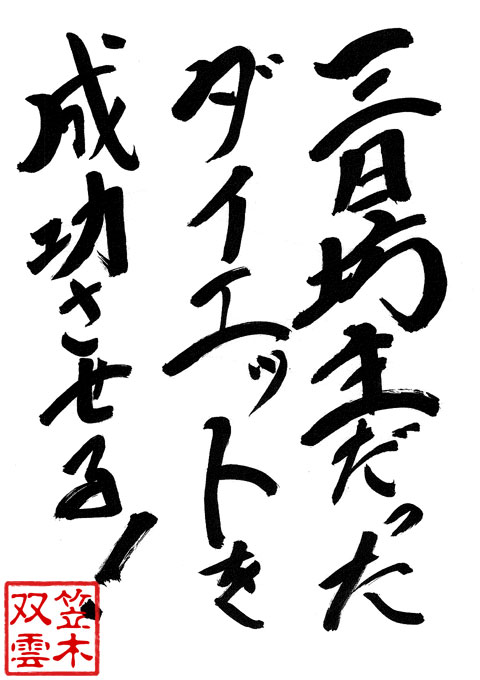 三日坊主だった
ダイエットを
成功させる!
笠木
双雲